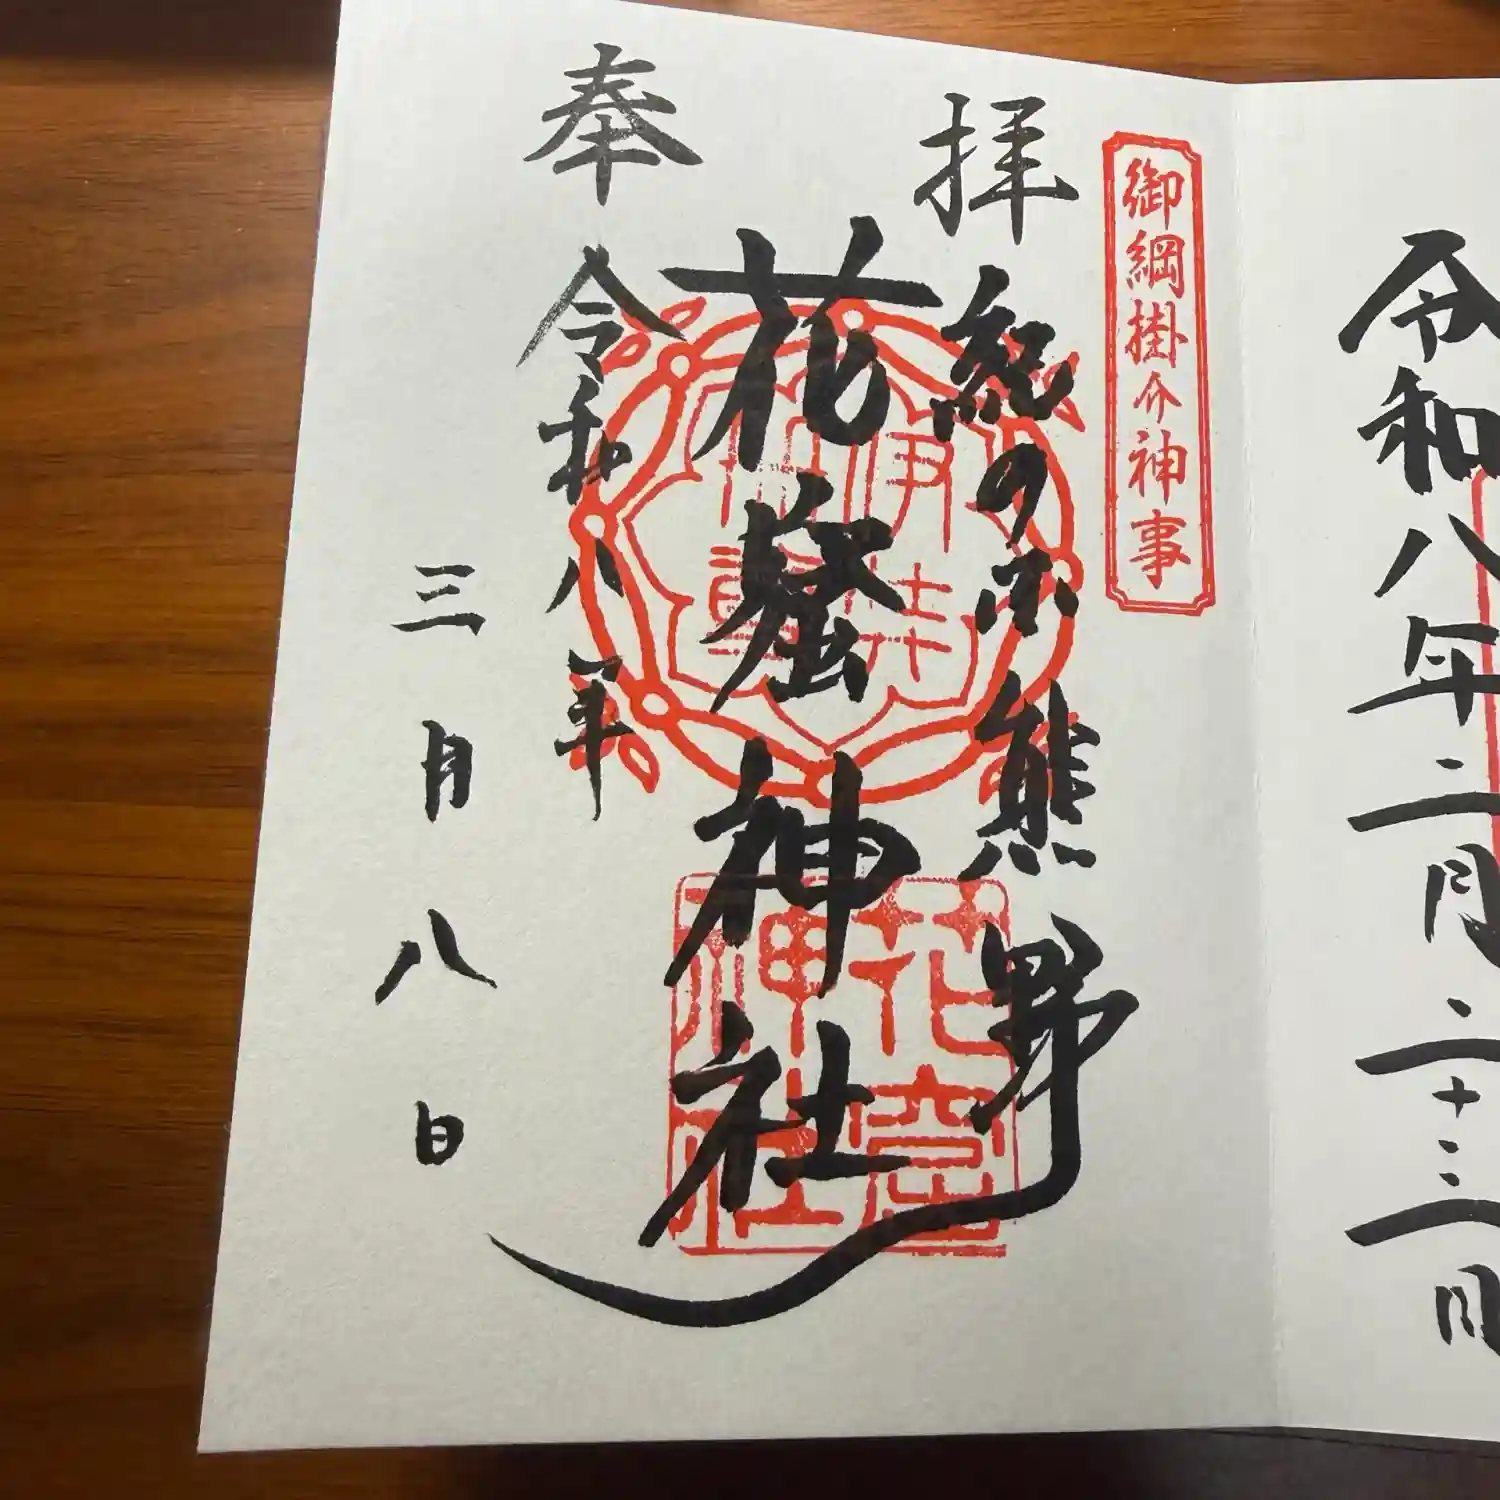 令和八年二月二十三日
御綱掛介神事
奉拝
紀の
熊野
花窟神社
花窟神社
令和八年
三月八日